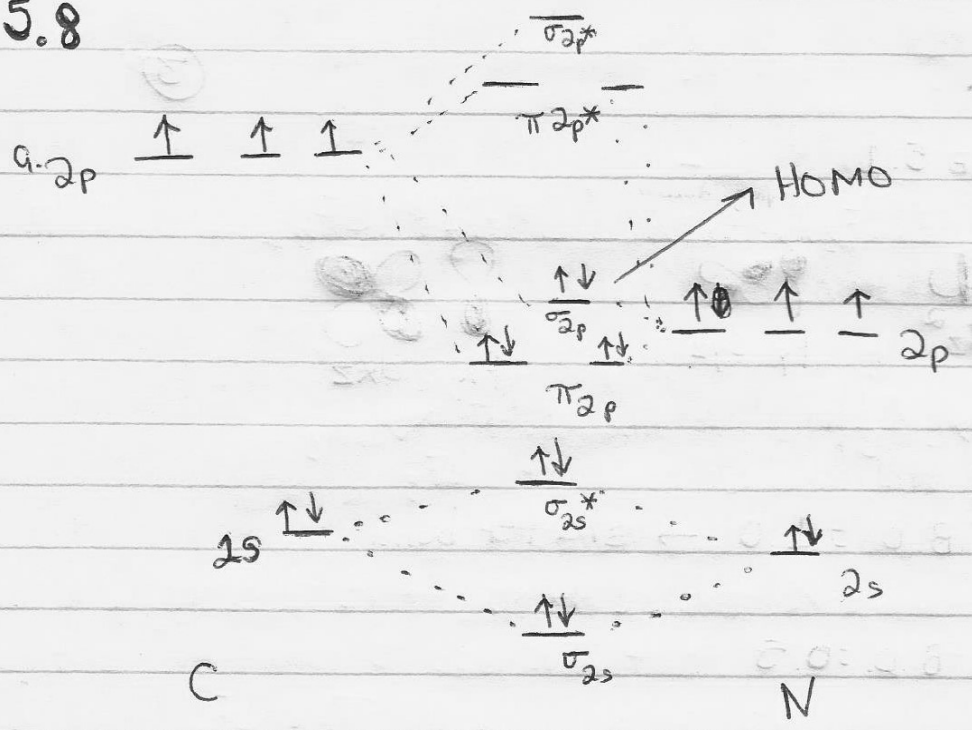 5.8
σ2p*
π2p*
a. 2p
HOMO
σ2p
2p
π2p
σ2s*
2s
2s
σ2s
C
N